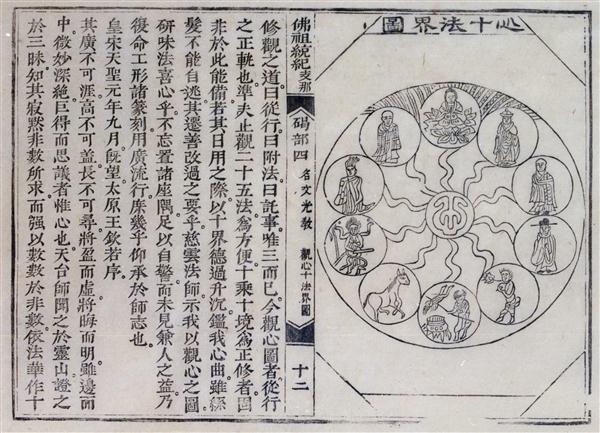 心十法界圖
心
佛祖統紀 支那
碣部四 名文光教 觀心十法界圖
十二
修觀之道曰從行曰附法曰託事唯三而已今觀心圖者從行
之正軌也準夫止觀二十五法爲方便十乘十境爲正修者固
非於此能備若其日用之際以十界德過升沉鑑我心曲雖絲
髮不能自逃其遷善改過之要乎慈雲法師示我以觀心之圖
研味法喜心乎不忘置諸座隅足以自警而未見兼人之益乃
復命工形諸篆刻用廣流行庶幾乎仰承於師志也
皇宋天聖元年九月旣望太原王欽若序
其廣不可涯高不可蓋長不可尋將盈而虛將晦而明雖邊而
中微妙深絕巨得而思議者惟心也天台師聞之於靈山證之
於三昧知其寂默非數所求而强以數數於非數倣法華作十